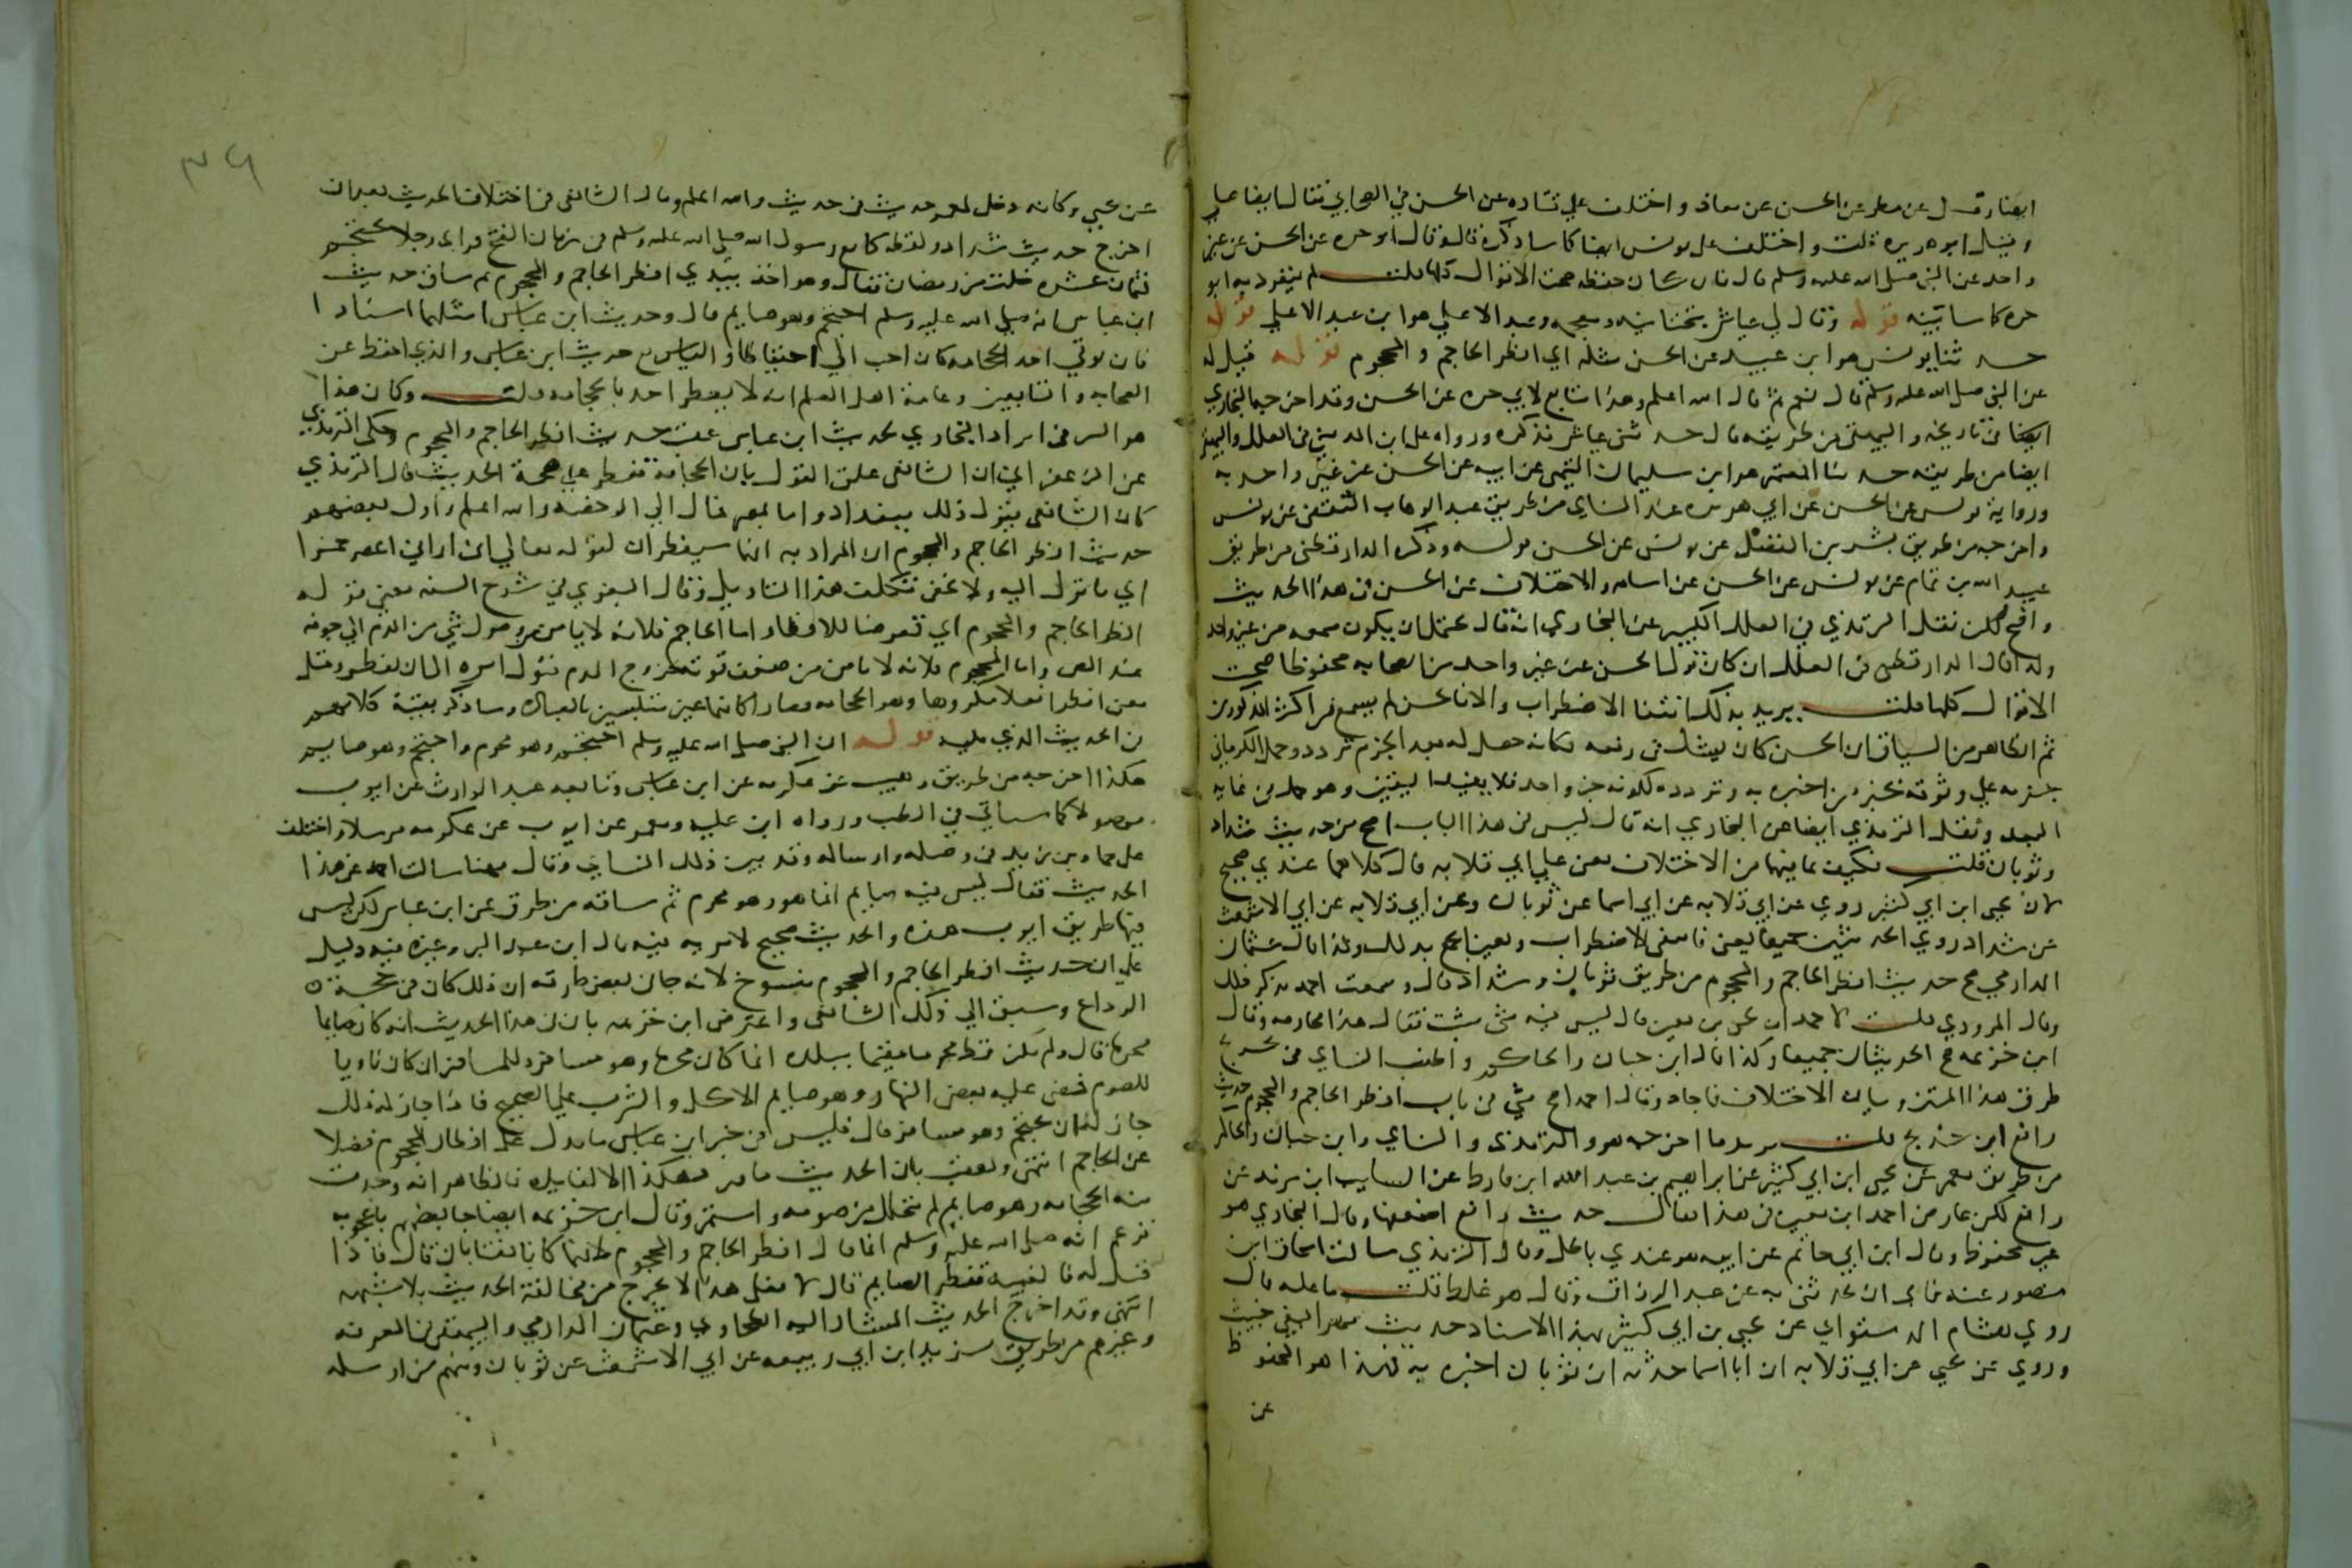 ايضا وقيل عن مطر عن الحسن عن معاذ واختلف على قتادة عن الحسن في الصحابي فقال ايضا علي
وقيل ابو هريرة قلت واختلف على يونس ايضا كما ساذكره قال وقال ابو حره عن الحسن عن غير
واحد عن النبي صلى الله عليه وسلم قال فان كان حفظه صحت الاقوال كلها قلت لم ينفرد به ابو
حره كما سابينه قوله وقال لي عياش بتحتانية ومعجمه وعبد الاعلى هو ابن عبد الاعلى قوله
حدثنا يونس هو ابن عبيد عن الحسن مثله اي افطر الحاجم والمحجوم قوله قيل له
عن النبي صلى الله عليه وسلم قال نعم ثم قال الله اعلم وهذا متابع لابي حره عن الحسن وقد اخرجه البخاري
ايضا في تاريخه والبيهقي من طريقه قال حدثني عياش فذكره ورواه علي ابن المديني في العلل والبيهقي
ايضا من طريقه حدثنا المعتمر هو ابن سليمان التيمي عن ابيه عن الحسن عن غير واحد به
ورواية يونس عن الحسن عن ابي هريرة عند النساي من طريق عبد الوهاب الثقفي عن يونس
واخرجه من طريق بشر بن المفضل عن يونس عن الحسن قوله وذكره الدارقطني من طريق
عبيد الله بن تمام عن يونس عن الحسن عن اسامه والاختلاف عن الحسن في هذا الحديث
واضح لكن نقل الترمذي في العلل الكبير عن البخاري انه قال يحتمل ان يكون سمعه من غير واحد
وكذا قال الدارقطني في العلل ان كان قول الحسن عن غير واحد من الصحابه محفوظا صحت
الاقوال كلها قلت يريد بذلك انتفا الاضطراب والا فالحسن لم يسمع من اكثر المذكورين
ثم الظاهر من السياق ان الحسن كان يشك في رفعه وكانه حصل له بعد الجزم تردد وحمل الكرماني
جزمه على وثوقه بخبر من اخبره به وتردده لكونه خبر واحد فلا يفيد اليقين وهو حمل في غايه
البعد ونقل الترمذي ايضا عن البخاري انه قال ليس في هذا الباب اصح من حديث شداد
وثوبان قلت فكيف بما فيهما من الاختلاف يعني على ابي قلابه قال كلاهما عندي صحيح
لان يحيى ابن ابي كثير روى عن ابي قلابه عن ابي اسما عن ثوبان وعن ابي قلابه عن ابي الاشعث
عن شداد روى الحديثين جميعا يعني فانتفى الاضطراب وتعين الجمع بذلك وكذا قال عثمان
الدارمي صح حديث افطر الحاجم والمحجوم من طريق ثوبان وشداد قال وسمعت احمد يذكر ذلك
وقال المروزي قلت لاحمد ان يحيى بن معين قال ليس فيه شي يثبت فقال هذا مجازفه وقال
ابن خزيمه صح الحديثان جميعا وكذا قال ابن حبان والحاكم واطنب النساي في تخريج
طرق هذا المتن وبيان الاختلاف فاجاد وقال احمد اصح شي في باب افطر الحاجم والمحجوم حديث
رافع ابن خديج قلت يريد ما اخرجه هو والترمذي والنساي وابن حبان والحاكم
من طريق معمر عن يحيى ابن ابي كثير عن ابراهيم بن عبد الله ابن قارظ عن السايب ابن يزيد عن
رافع لكن عارض احمد ابن معين في هذا فقال حديث رافع اضعفها وقال البخاري هو
غير محفوظ وقال ابن ابي حاتم عن ابيه هو عندي باطل وقال الترمذي سالت اسحاق ابن
منصور عنه فابى ان يحدثني به عن عبد الرزاق وقال هو غلط قلت ما علته قال
روى هشام الدستواي عن يحيى بن ابي كثير بهذا الاسناد حديث مهر البغي خبيث
وروى عن يحيى عن ابي قلابه ان ابا اسما حدثه ان ثوبان اخبره به فهذا هو المحفوظ
عن
٣٤٩
عن يحيى وكانه دخل لمعمر حديث في حديث والله اعلم وقال الشافعي في اختلاف الحديث بعد ان
اخرج حديث شداد ولفظه كنا مع رسول الله صلى الله عليه وسلم في زمان الفتح فراى رجلا يحتجم
لثمان عشره خلت من رمضان فقال وهو اخذ بيدي افطر الحاجم والمحجوم ثم ساق حديث
ابن عباس انه صلى الله عليه وسلم احتجم وهو صايم قال وحديث ابن عباس امثلهما اسنادا
فان توقى احد الحجامه كان احب الي احتياطا والقياس مع حديث ابن عباس والذي احفظ عن
الصحابه والتابعين وعامة اهل العلم انه لا يفطر احد بالحجامه قلت وكان هذا
هو السر في ايراد البخاري لحديث ابن عباس عقب حديث افطر الحاجم والمحجوم وحكى الترمذي
عن الزعفراني ان الشافعي علق القول بان الحجامة تفطر على صحة الحديث قال الترمذي
كان الشافعي يقول ذلك ببغداد واما بمصر فمال الى الرخصه والله اعلم واول بعضهم
حديث افطر الحاجم والمحجوم ان المراد به انهما سيفطران لقوله تعالى اني اراني اعصر خمرا
اي ما يؤل اليه ولا يخفى تكلف هذا التاويل وقال البغوي في شرح السنه معنى قوله
افطر الحاجم والمحجوم اي تعرضا للافطار اما الحاجم فلانه لا يامن وصول شي من الدم الى جوفه
عند المص واما المحجوم فلانه لا يامن من ضعف قوته بخروج الدم فيؤل امره الى ان يفطر وقيل
معنى افطرا فعلا مكروها وهو الحجامه فصارا كانهما غير متلبسين بالعباده وساذكر بقية كلامهم
في الحديث الذي يليه قوله ان النبي صلى الله عليه وسلم احتجم وهو محرم واحتجم وهو صايم
هكذا اخرجه من طريق وهيب عن عكرمه عن ابن عباس وتابعه عبد الوارث عن ايوب
موصولا كما سياتي في الطب ورواه ابن عليه ومعمر عن ايوب عن عكرمه مرسلا واختلف
على حماد بن زيد في وصله وارساله وقد بين ذلك النساي وقال مهنا سالت احمد عن هذا
الحديث فقال ليس فيه صايم انما هو وهو محرم ثم ساقه من طرق عن ابن عباس لكن ليس
فيها طريق ايوب هذه والحديث صحيح لا مريه فيه قال ابن عبد البر وغيره فيه دليل
على ان حديث افطر الحاجم والمحجوم منسوخ لانه جا في بعض طرقه ان ذلك كان في حجة
الوداع وسبق الى ذلك الشافعي واعترض ابن خزيمه بان في هذا الحديث انه كان صايما
محرما قال ولم يكن قط محرما مقيما ببلده انما كان محرما وهو مسافر وللمسافر ان كان ناويا
للصوم فمضى عليه بعض النهار وهو صايم الاكل والشرب على الصحيح فاذا جاز له ذلك
جاز له ان يحتجم وهو مسافر قال فليس في خبر ابن عباس ما يدل على افطار المحجوم فضلا
عن الحاجم انتهى وتعقب بان الحديث ما ورد هكذا الا لفايده فالظاهر انه وجدت
منه الحجامه وهو صايم لم يتحلل من صومه واستمر وقال ابن خزيمه ايضا جا بعضهم باعجوبه
فزعم انه صلى الله عليه وسلم انما قال افطر الحاجم والمحجوم لانهما كانا يغتابان قال فاذا
قيل له فالغيبه تفطر الصايم قال لا فعلى هذا لا يخرج من مخالفة الحديث بلا شبهه
انتهى وقد اخرج الحديث المشار اليه الطحاوي وعثمان الدارمي والبيهقي في المعرفه
وغيرهم من طريق يزيد ابن ابي ربيعه عن ابي الاشعث عن ثوبان ومنهم من ارسله